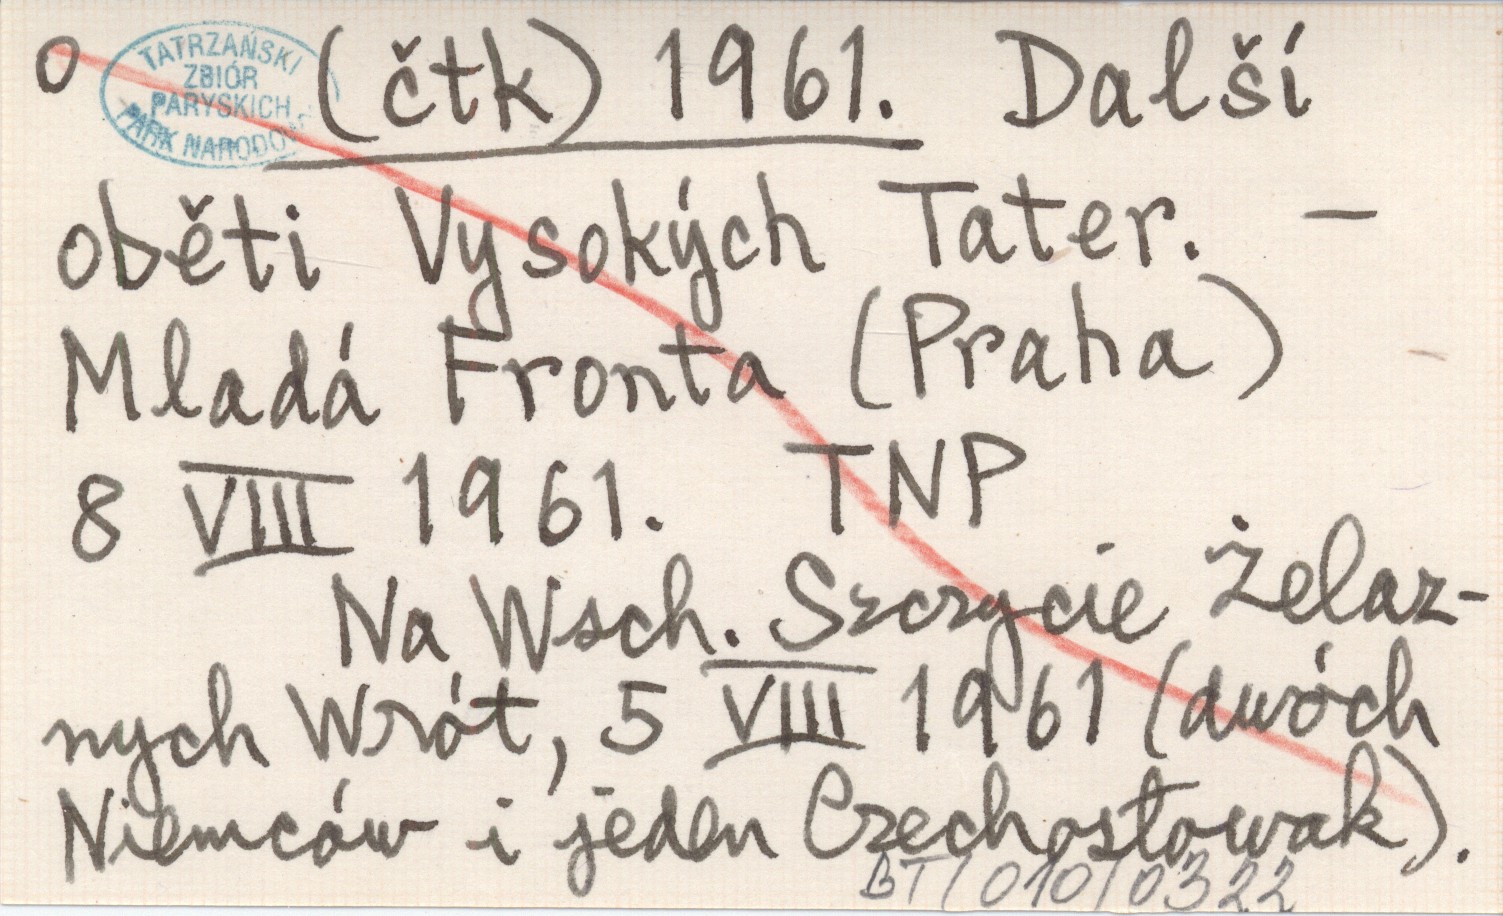 o
TATRZAŃSKI
ZBIÓR
PARYSKICH
PARK NARODOW
(čtk) 1961. Další
oběti Vysokých Tater. —
Mladá Fronta (Praha)
8 VIII 1961. TNP
Na Wsch. Szczycie Żelaz-
nych Wrót, 5 VIII 1961 (dwóch
Niemców i jeden Czechosłowak).
BT/010/0322